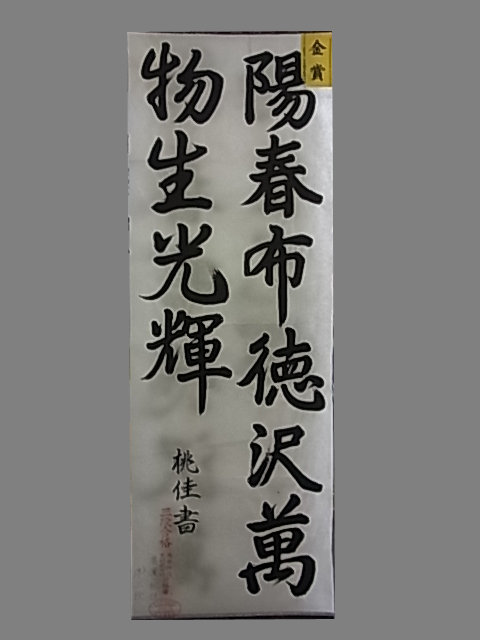 陽春布徳沢萬
物生光輝
桃佳書
金賞